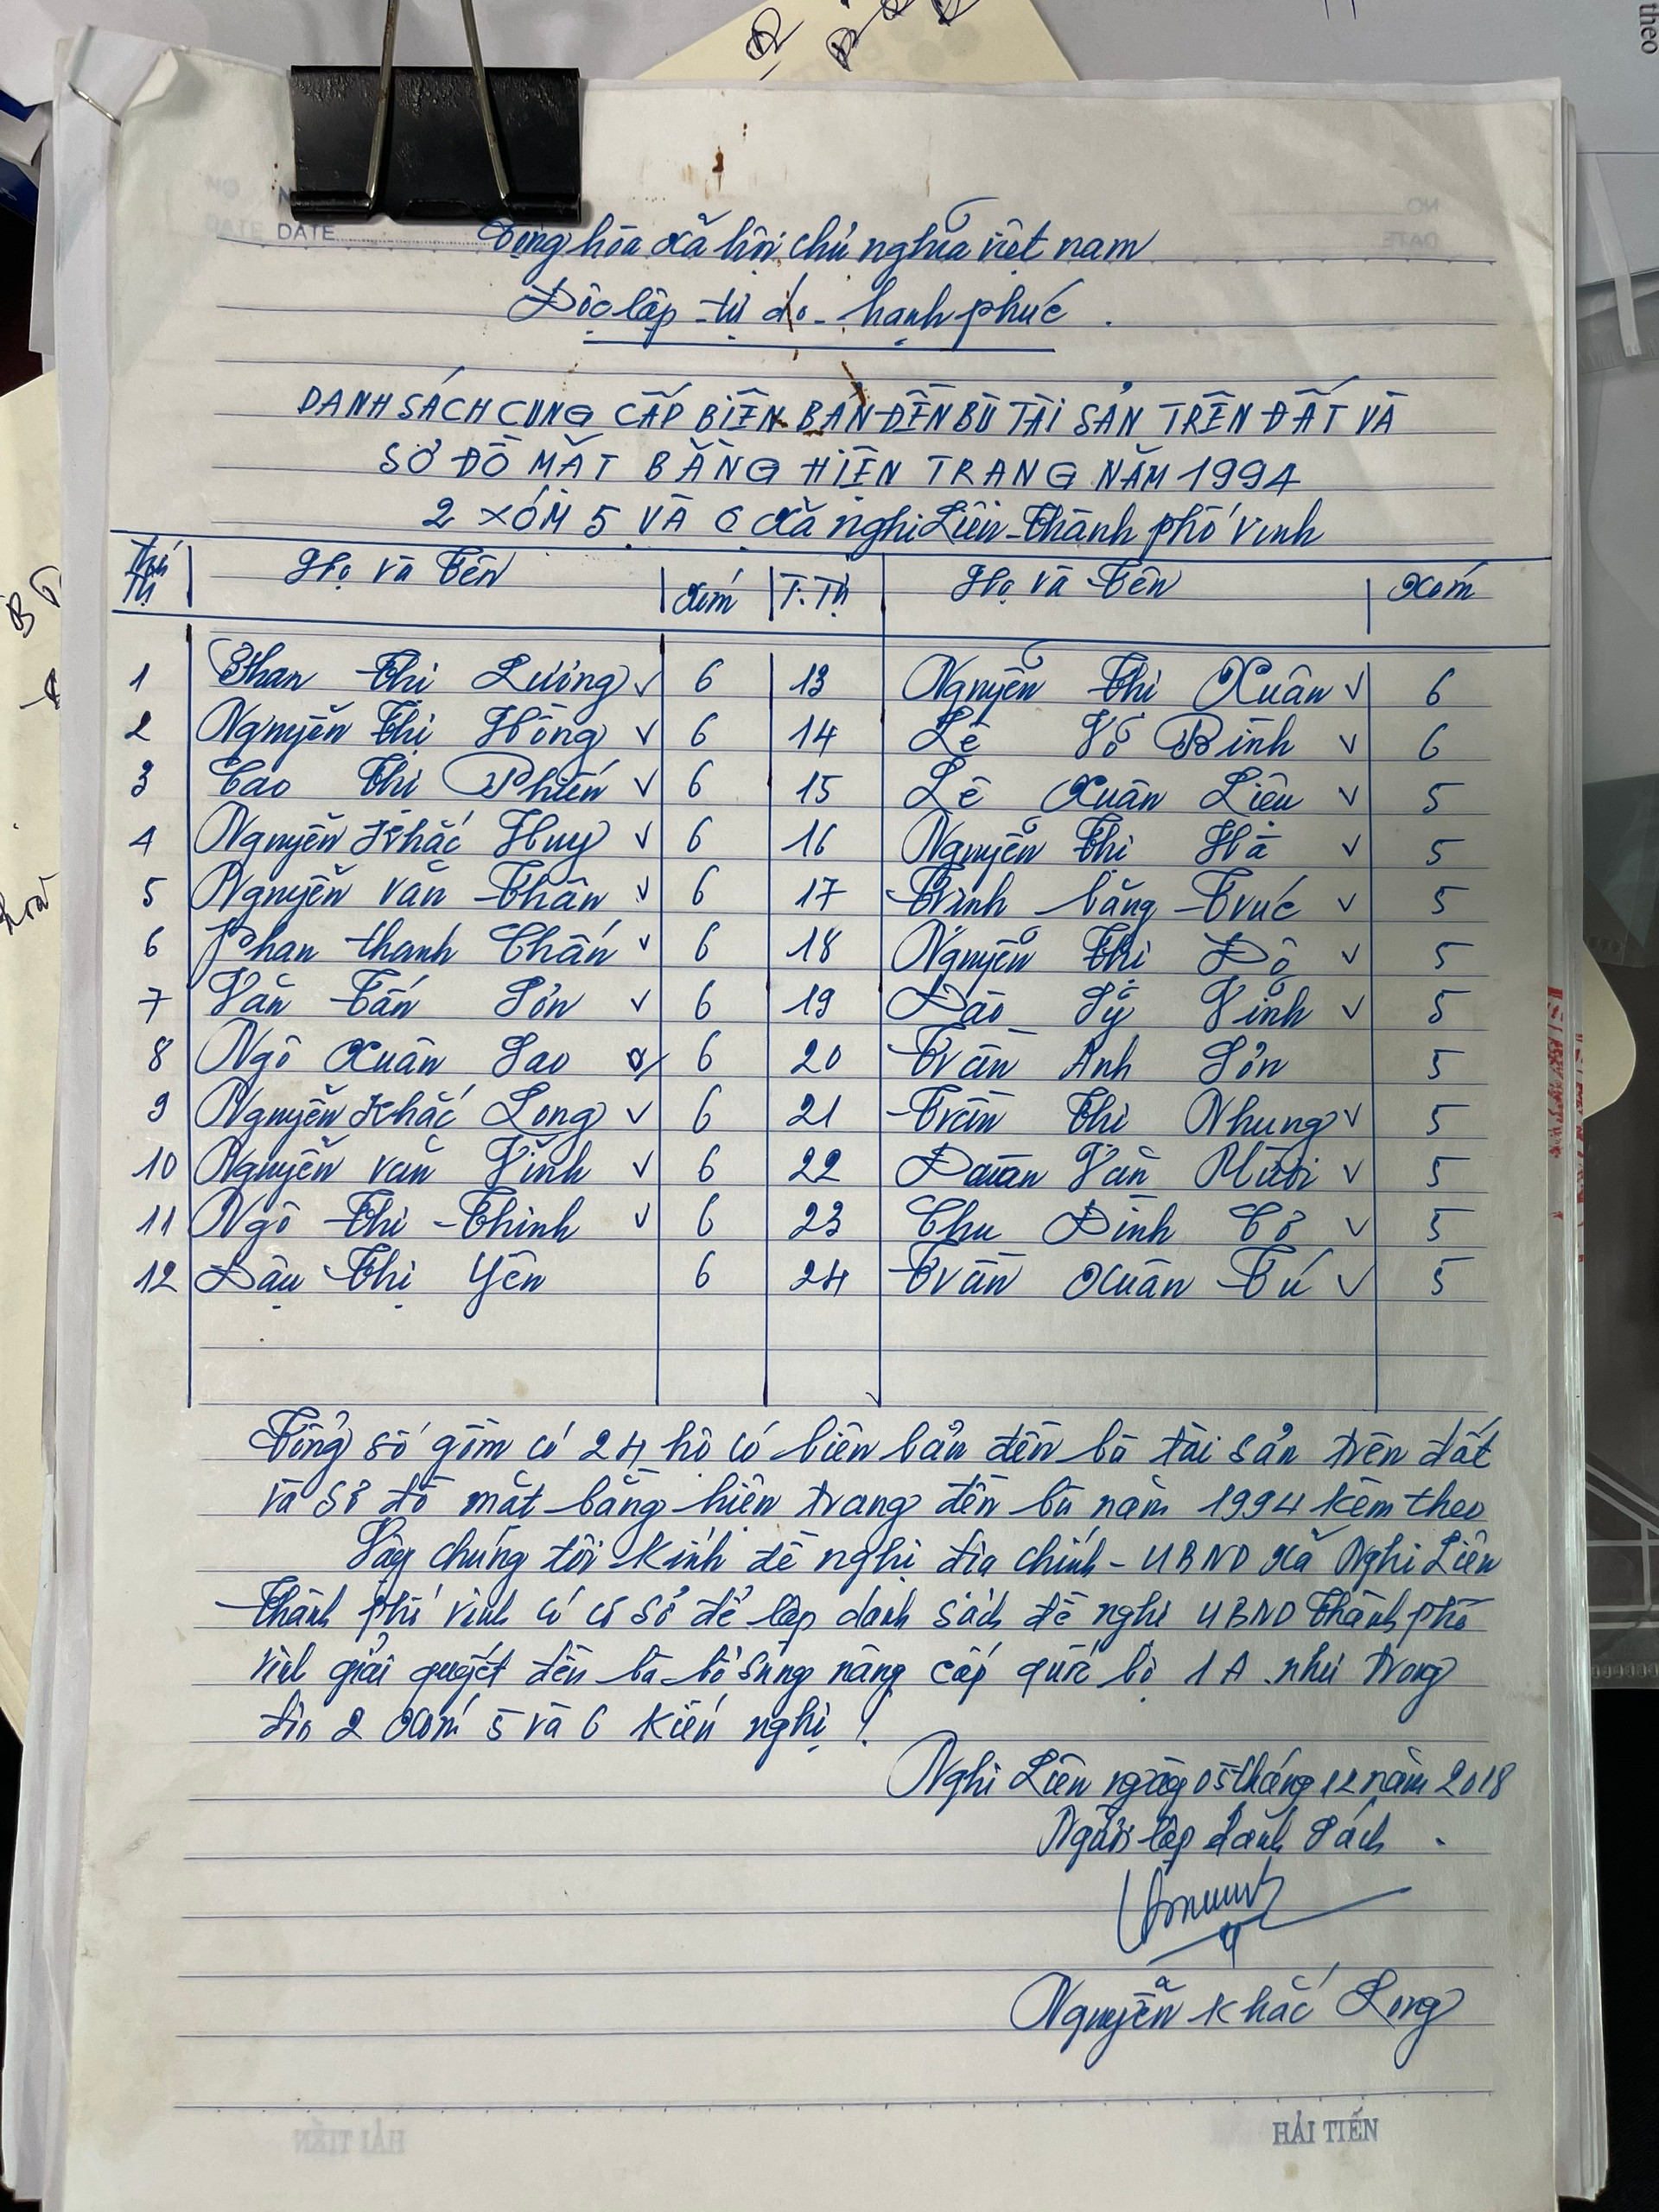 DATE
Cộng hòa xã hội chủ nghĩa việt nam
Độc lập - tự do - hạnh phúc.
DANH SÁCH CUNG CẤP BIÊN BẢN ĐỀN BÙ TÀI SẢN TRÊN ĐẤT VÀ
SƠ ĐỒ MẶT BẰNG HIỆN TRẠNG NĂM 1994
2 XÓM 5 VÀ 6 xã nghi Liên - Thành phố vinh
Thứ Tự Họ và Tên Xóm T.Tự Họ và Tên Xóm
1 Phan Thị Lương ✓ 6 13 Nguyễn Thị Xuân ✓ 6
2 Nguyễn Thị Hồng ✓ 6 14 Lê Võ Bình ✓ 6
3 Cao Thị Phiến ✓ 6 15 Lê Xuân Liệu ✓ 5
4 Nguyễn Khắc Huy ✓ 6 16 Nguyễn Thị Hà ✓ 5
5 Nguyễn văn Thân ✓ 6 17 Trình băng Trúc ✓ 5
6 Phan thanh Chấn ✓ 6 18 Nguyễn Thị Độ ✓ 5
7 Văn Tấn Sơn ✓ 6 19 Đào Sỹ Vinh ✓ 5
8 Ngô Xuân Sao 6 20 Trần Anh Sơn 5
9 Nguyễn Khắc Long ✓ 6 21 Trần Thị Nhung ✓ 5
10 Nguyễn văn Vinh ✓ 6 22 Văn Mười ✓ 5
11 Ngô Thị Thinh ✓ 6 23 Chu Đình Cơ ✓ 5
12 Đậu Thị Yên 6 24 Trần Xuân Tú ✓ 5
Tổng số gồm có 24 hộ có biên bản đền bù tài sản trên đất
và sơ đồ mặt bằng hiện trạng đền bù năm 1994 kèm theo
Vậy chúng tôi kính đề nghị địa chính - UBND xã Nghi Liên
Thành phố vinh có cơ sở để lập danh sách đề nghị UBND Thành phố
vinh giải quyết đền bù bổ sung nâng cấp quốc lộ 1A như trong
đơn 2 xóm 5 và 6 kiến nghị!
Nghi Liên ngày 05 tháng 12 năm 2018
Người lập danh sách.
Nguyễn Khắc Long
HẢI TIẾN
theo